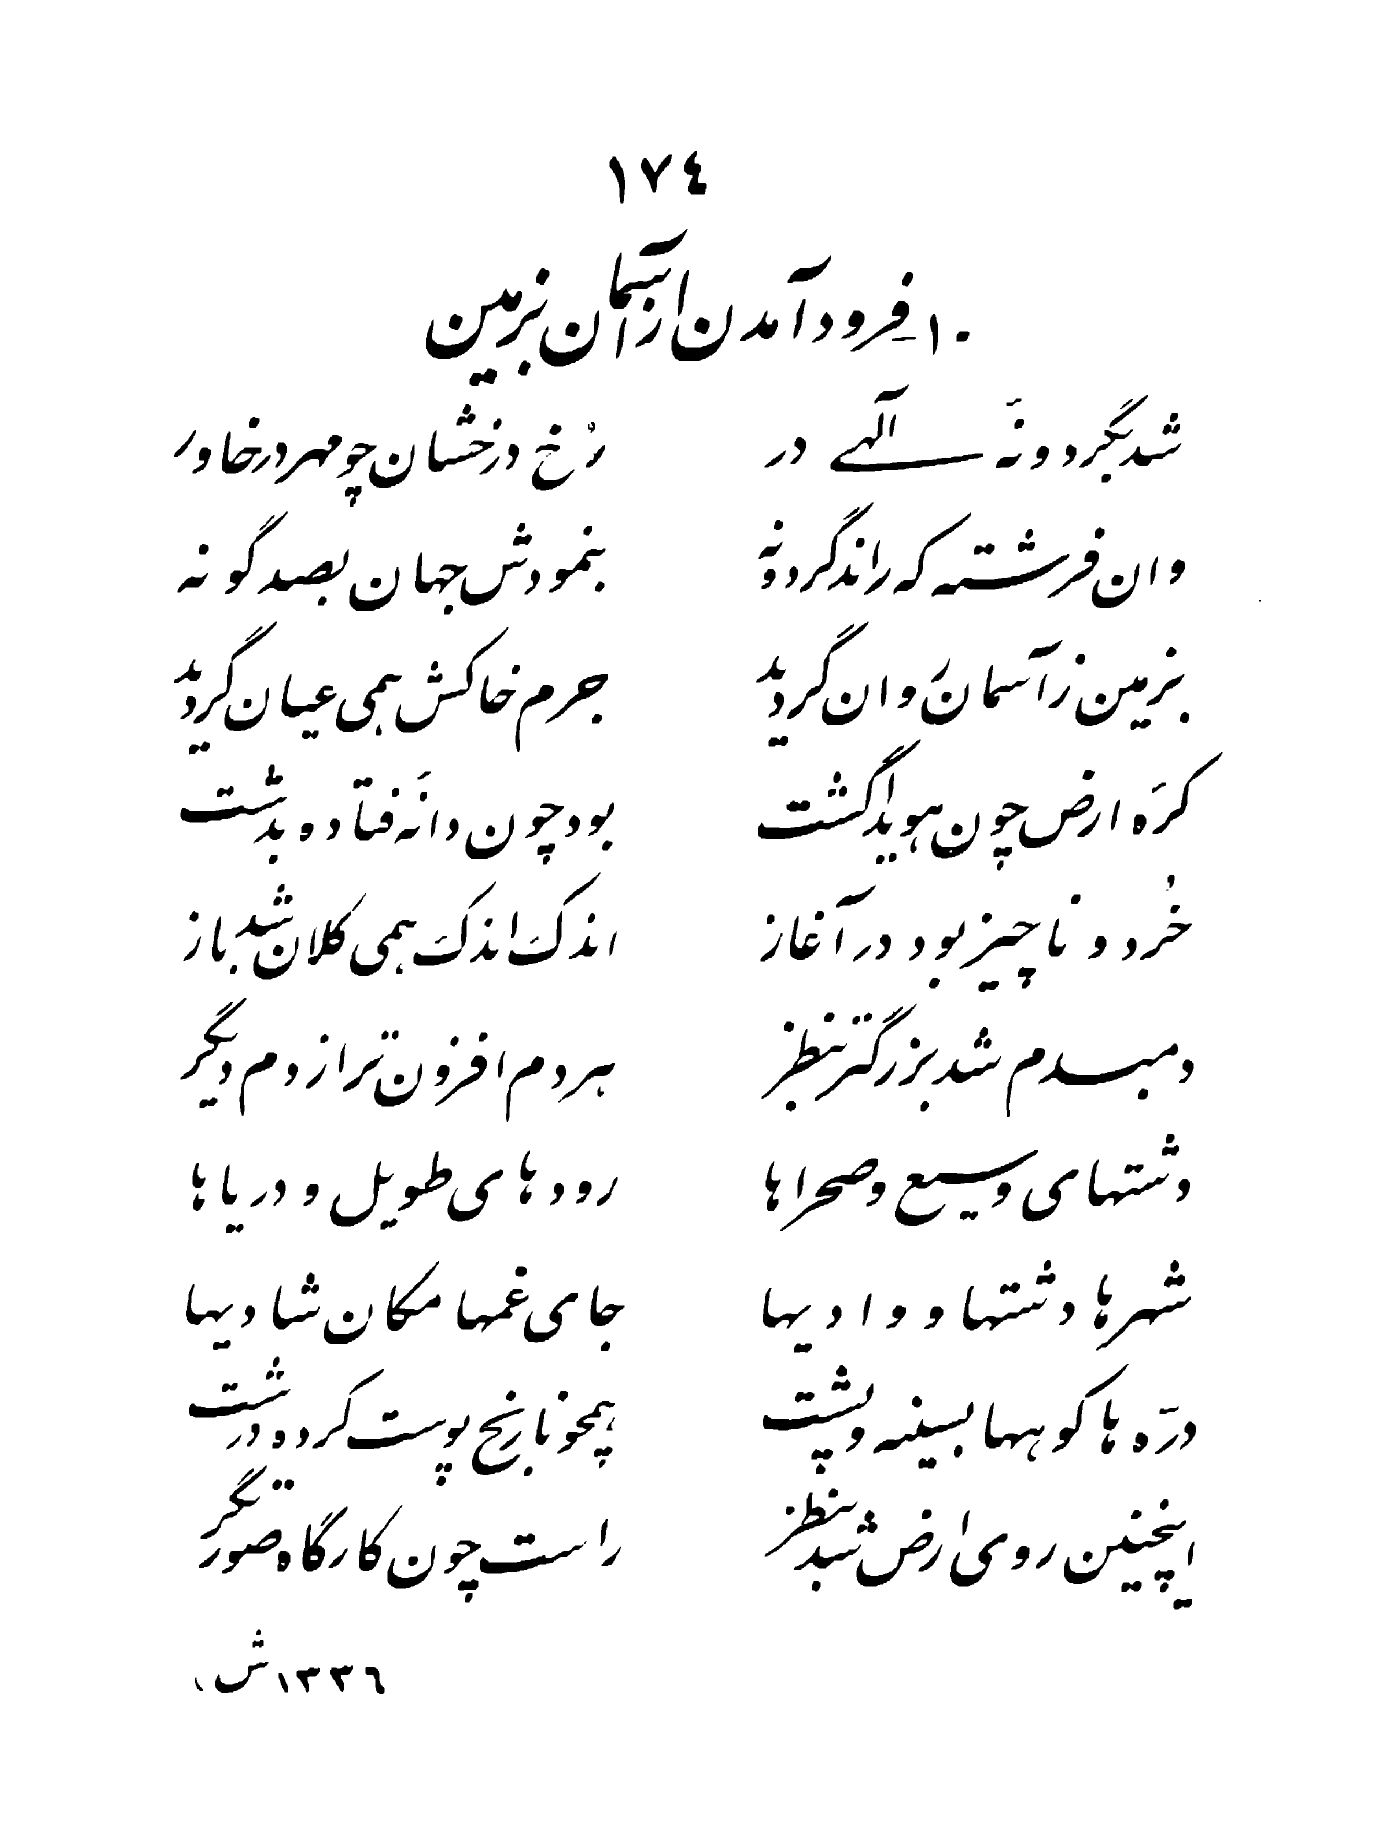 ١٧٤
١٠- فرود آمدن از آسمان بزمین
شد بگردونهٔ الهی در رُخ درخشان چو مهر در خاور
وان فرشته که راند گردونه بنمودش جهان بصد گونه
بزمین ز آسمان رَوان گردید جرم خاکش همی عیان گردید
کرَه ارض چون هویدا گشت بود چون دانهٔ فتاده بدشت
خُرد و ناچیز بود در آغاز اندکَ اندکَ همی کلان شد باز
دمبدم شد بزرگتر بنظر هر دم افزون‌تر از دم دیگر
دشتهای وسیع و صحراها رودهای طویل و دریاها
شهرها دشتها و وادیها جای غمها مکان شادیها
درّه‌ها کوهها بسینه و پشت همچو نارنج پوست کرده درشت
اینچنین روی ارض شد بنظر راست چون کارگاه صورتگر
١٣٣٦ ش،